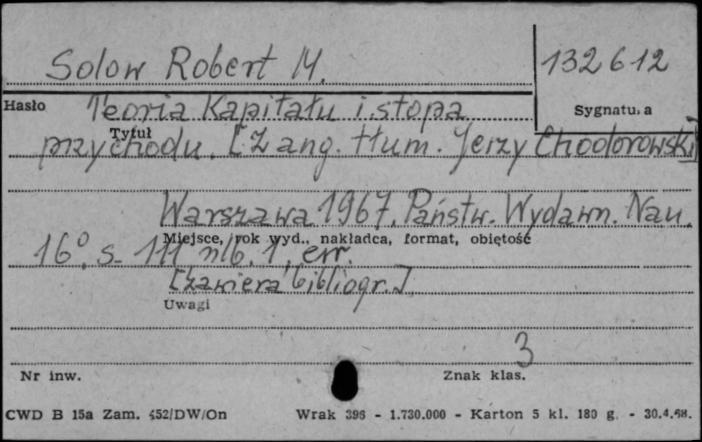 Solow Robert M.
132612
Hasło
Teoria Kapitału i stopa
Sygnatura
Tytuł
przychodu. [Z ang. tłum. Jerzy Chodorowski]
Warszawa 1967. Państw. Wydawn. Nau.
Miejsce, rok wyd., nakładca, format, objętość
16°, s. 111 nlb. 1, err.
[Zawiera bibliogr.]
Uwagi
3
Nr inw.
Znak klas.
CWD B 15a Zam. 452/DW/On Wrak 396 - 1.730.000 - Karton 5 kl. 180 g. - 30.4.68.